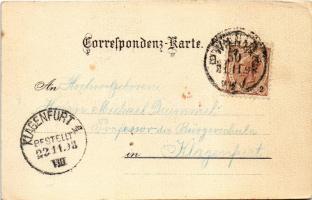 Correspondenz-Karte.
An Hochwohlgeboren
Herrn Michael
Professor der Bürgerschule
in Klagenfurt
KLAGENFURT
BESTELLT
22.11.98
VIII
2